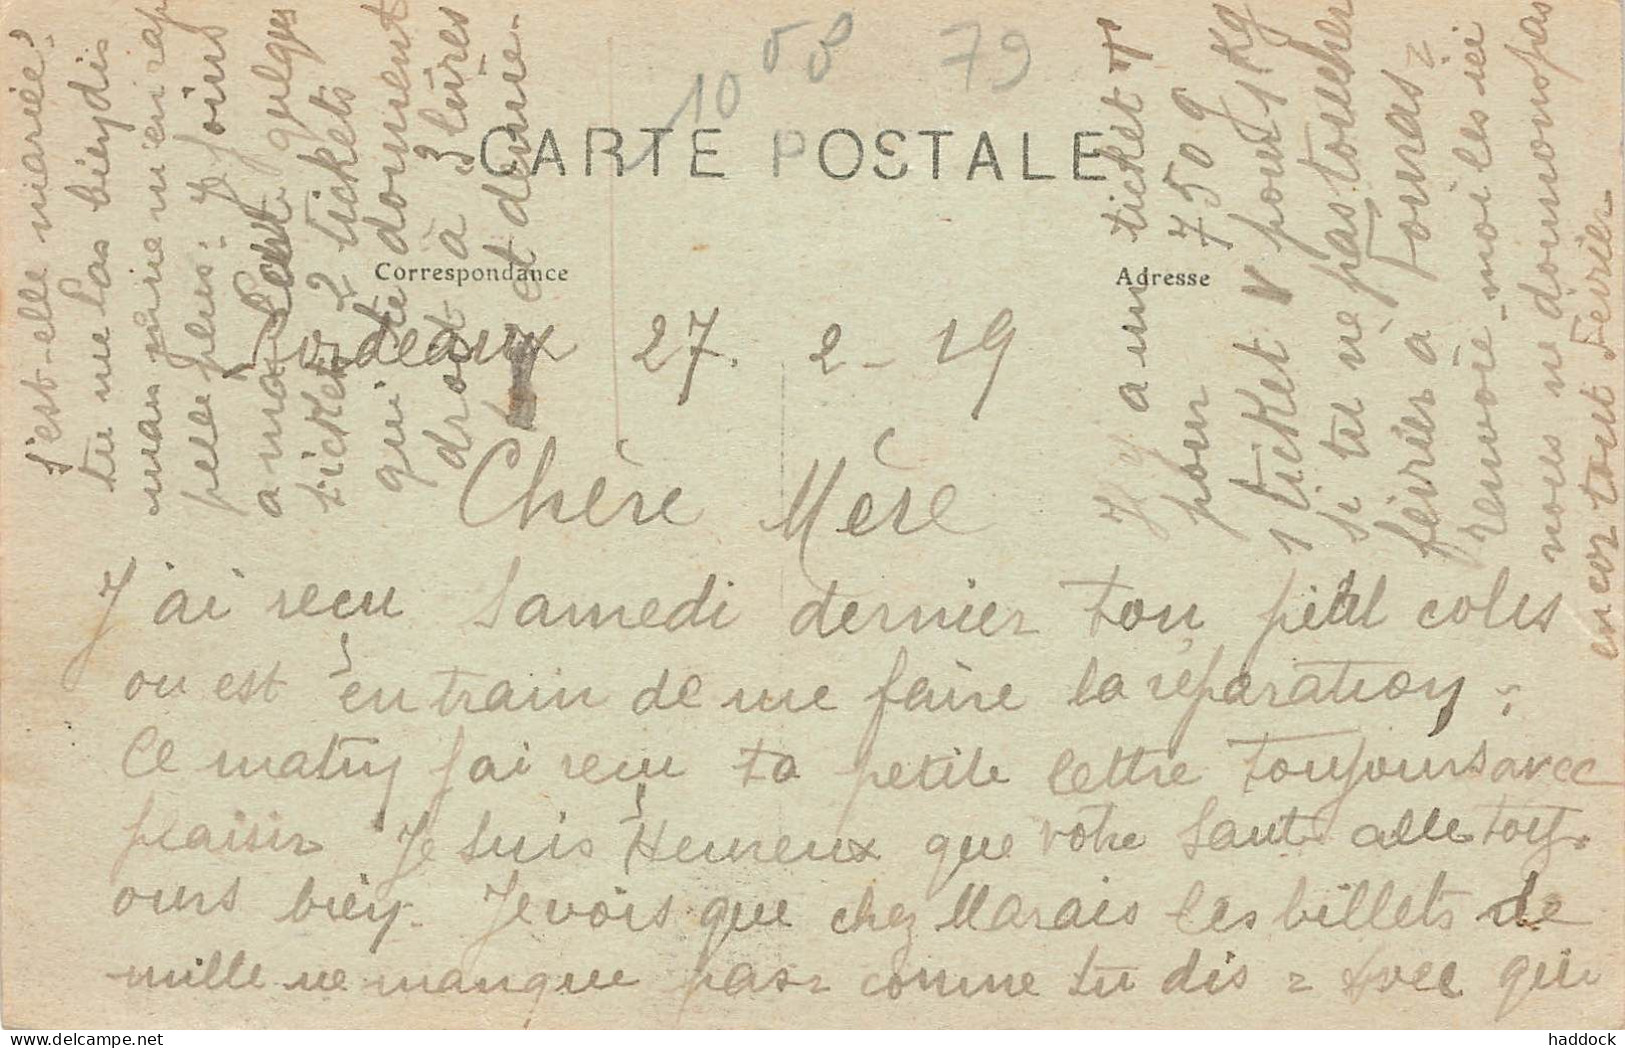 10 58 79
CARTE POSTALE
Correspondance
Adresse
Bordeaux 27. 2 - 19
Chère Mère
J'ai recu Samedi dernier ton petit colis
on est en train de me faire la réparation,
Ce matin j'ai recu ta petite lettre toujours avec
plaisir Je suis Heureux que votre Santé aille touj-
ours bien. Je vois que chez Marais les billets de
mille ne manque pas comme tu dis = Avec qui
s'est-elle mariée?
tu me l'as bien dis
mais je ne m'en rap
pelle plus: Je joins
a ma quelques
tickets 2 tickets
qui te donnent
droit à 3 livres
et demie.
Il y a un ticket T
pour 750g
1 ticket V pour 1 Kg
si tu ne pas toucher
février à
renvoie-moi les ici
nous ne donnons pas
encor tout Fevrier
haddock